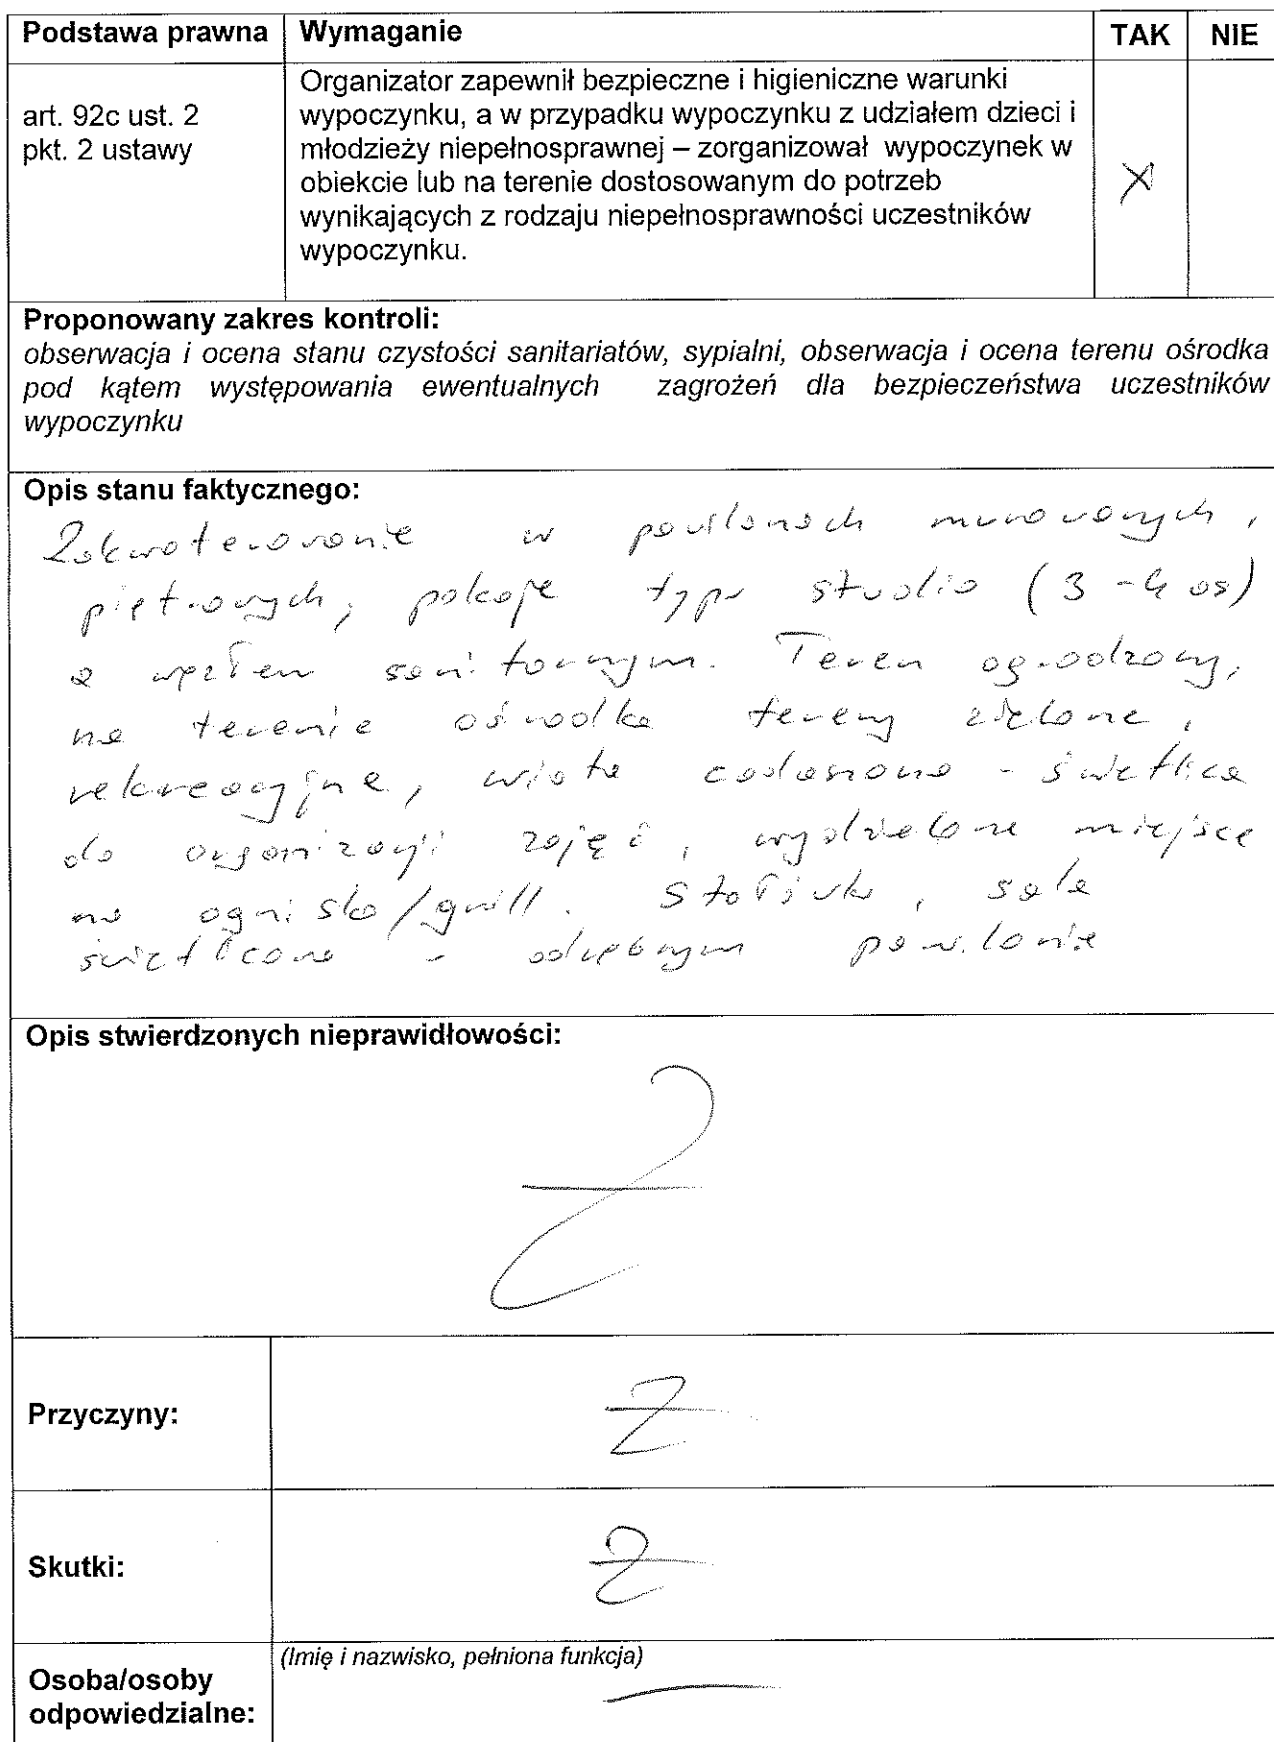 Podstawa prawna Wymaganie TAK NIE
art. 92c ust. 2
pkt. 2 ustawy
Organizator zapewnił bezpieczne i higieniczne warunki
wypoczynku, a w przypadku wypoczynku z udziałem dzieci i
młodzieży niepełnosprawnej – zorganizował wypoczynek w
obiekcie lub na terenie dostosowanym do potrzeb
wynikających z rodzaju niepełnosprawności uczestników
wypoczynku.
X
Proponowany zakres kontroli:
obserwacja i ocena stanu czystości sanitariatów, sypialni, obserwacja i ocena terenu ośrodka
pod kątem występowania ewentualnych zagrożeń dla bezpieczeństwa uczestników
wypoczynku
Opis stanu faktycznego:
Zakwaterowanie w pawilonach murowanych,
piętrowych, pokoje typu studio (3-4 os)
z węzłem sanitarnym. Teren ogrodzony,
na terenie ośrodka tereny zielone,
rekreacyjne, wiata - świetlica
do organizacji zajęć, wydzielone miejsce
na ognisko/grill. Stołówka, sala
świetlicowa - odrębnym pawilonie
Opis stwierdzonych nieprawidłowości:
Przyczyny:
Skutki:
Osoba/osoby
odpowiedzialne:
(Imię i nazwisko, pełniona funkcja)